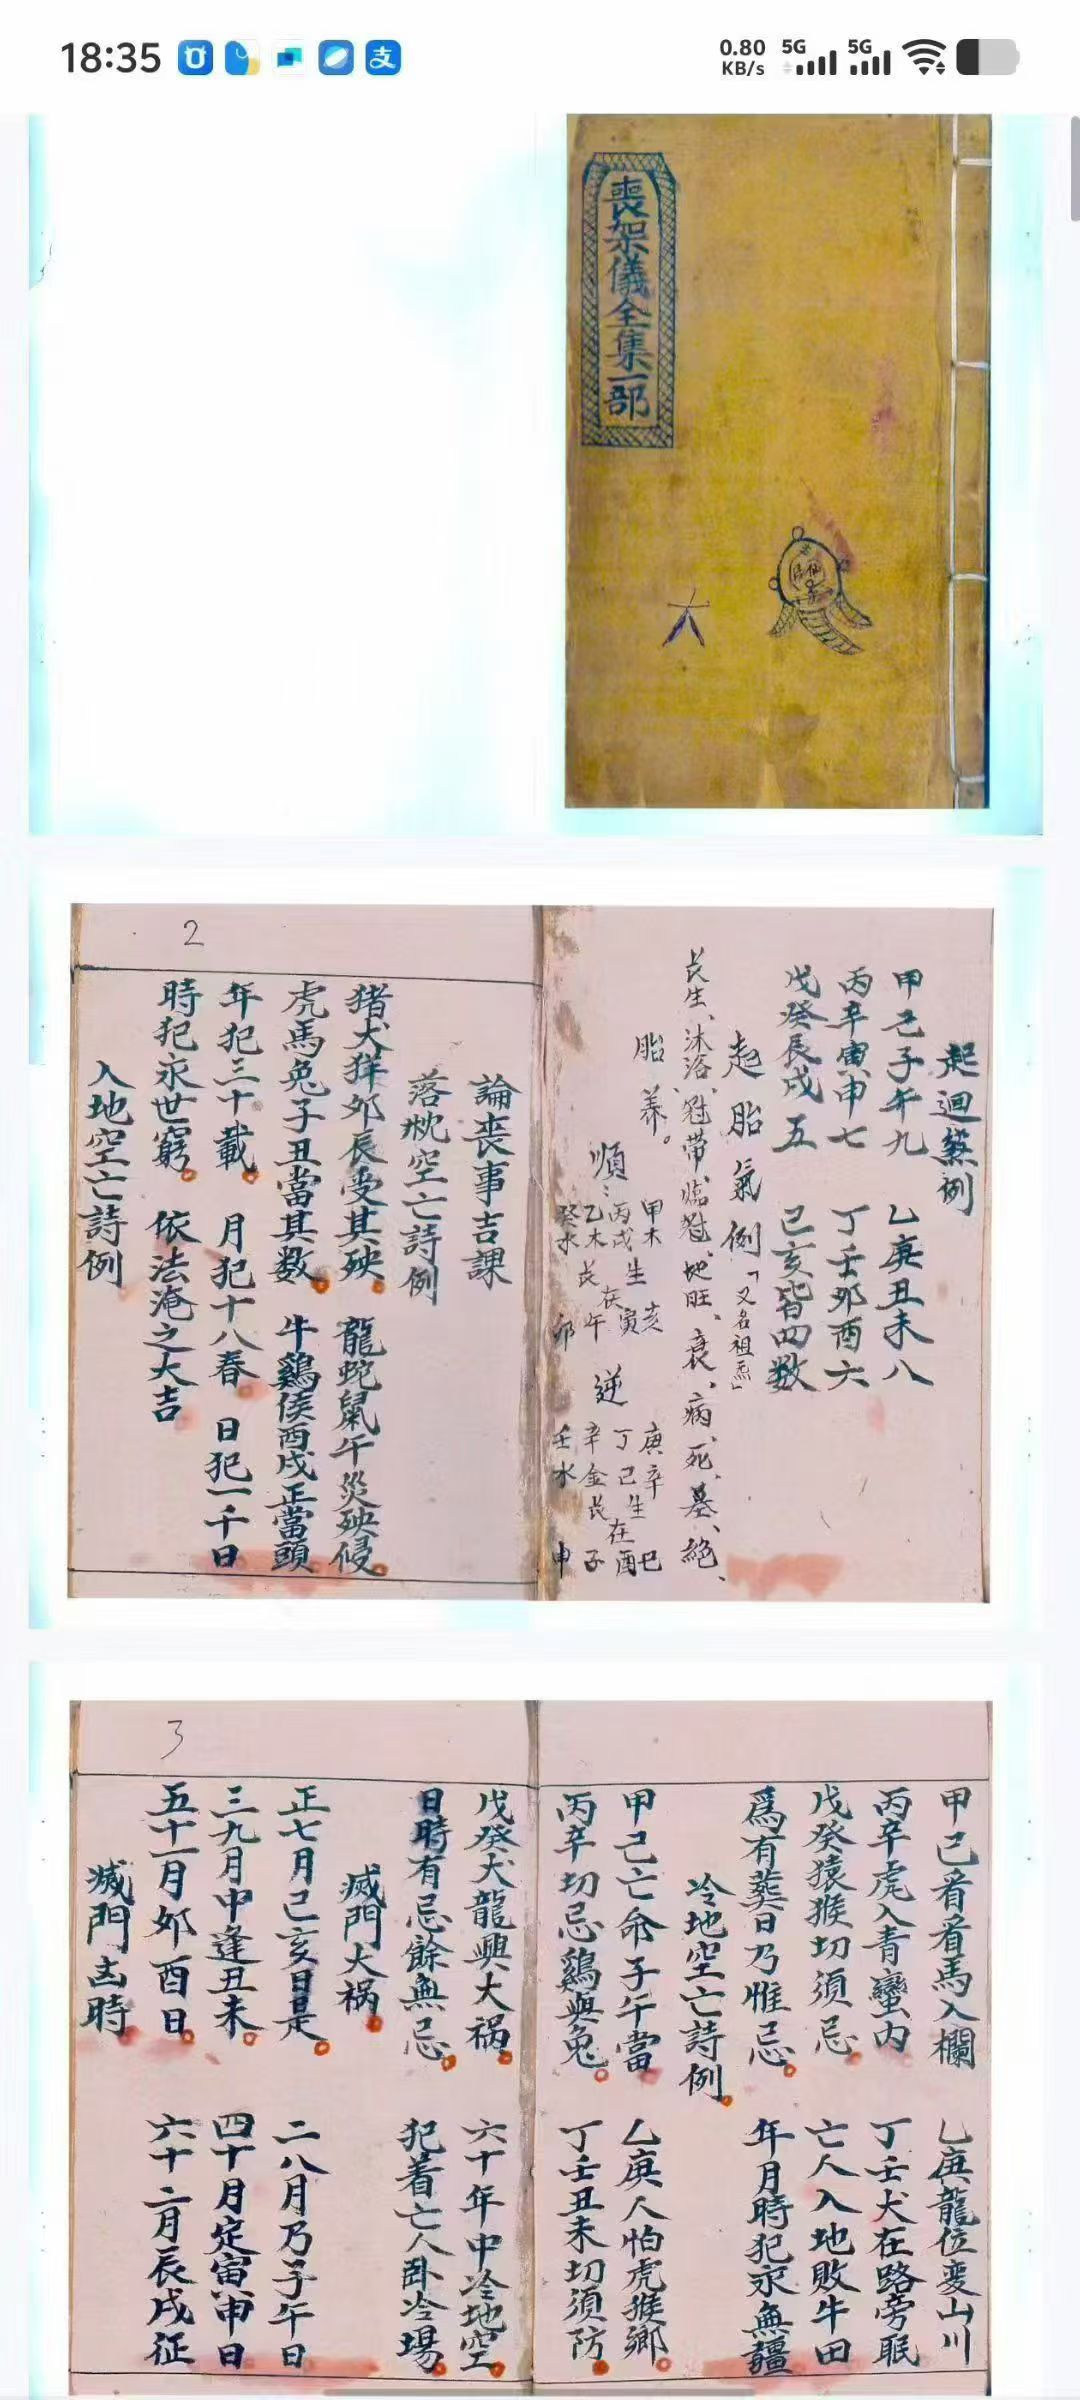 18:35
0.80
KB/s
5G
5G
喪架儀全集一部
起迴煞例
甲己子午九 乙庚丑未八
丙辛寅申七 丁壬卯酉六
戊癸辰戌五 己亥皆四数
起胎氣例「又名祖炁」
長生、沐浴、冠带、臨冠、地旺、衰、病、死、墓、絕、
胎 养。
順：甲木 丙戊生 乙木長在午 癸水 卯 寅 亥
逆 庚辛 丁己生 辛金長在酉 壬水 申 子 巳
2
論喪事吉課
落枕空亡詩例
猪犬羊卯辰受其殃 龍蛇鼠午災殃侵
虎馬兔子丑當其数 牛鷄侯酉戌正當頭
年犯三十載 月犯十八春 日犯一千日
時犯永世窮 依法淹之大吉
入地空亡詩例
甲己看看馬入欄 乙庚龍位变山川
丙辛虎入青蠻内 丁壬犬在路旁眠
戊癸猿猴切須忌 亡人入地敗牛田
爲有葬日乃惟忌 年月時犯永無疆
冷地空亡詩例
甲己亡命子午當 乙庚人怕虎猴鄉
丙辛切忌鷄與兔 丁壬丑未切須防
3
戊癸犬龍興大祸 六十年中冷地空
日時有忌餘無忌 犯着亡人卧冷場
滅門大祸
正七月己亥日是 二八月乃子午日
三九月中逢丑未 四十月定寅申日
五十一月卯酉日 六十二月辰戌征
滅門凶時